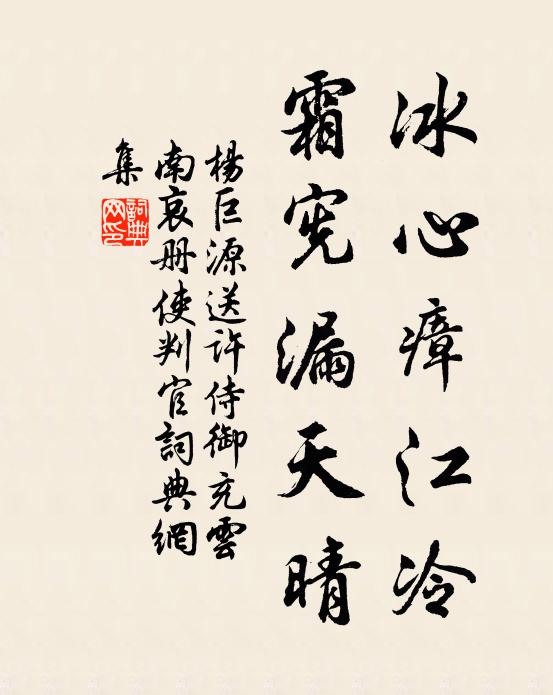 冰心瘴江冷
霜宪漏天晴
楊巨源送許侍御充雲
南哀册使判官詞典網
集
詞典
网印